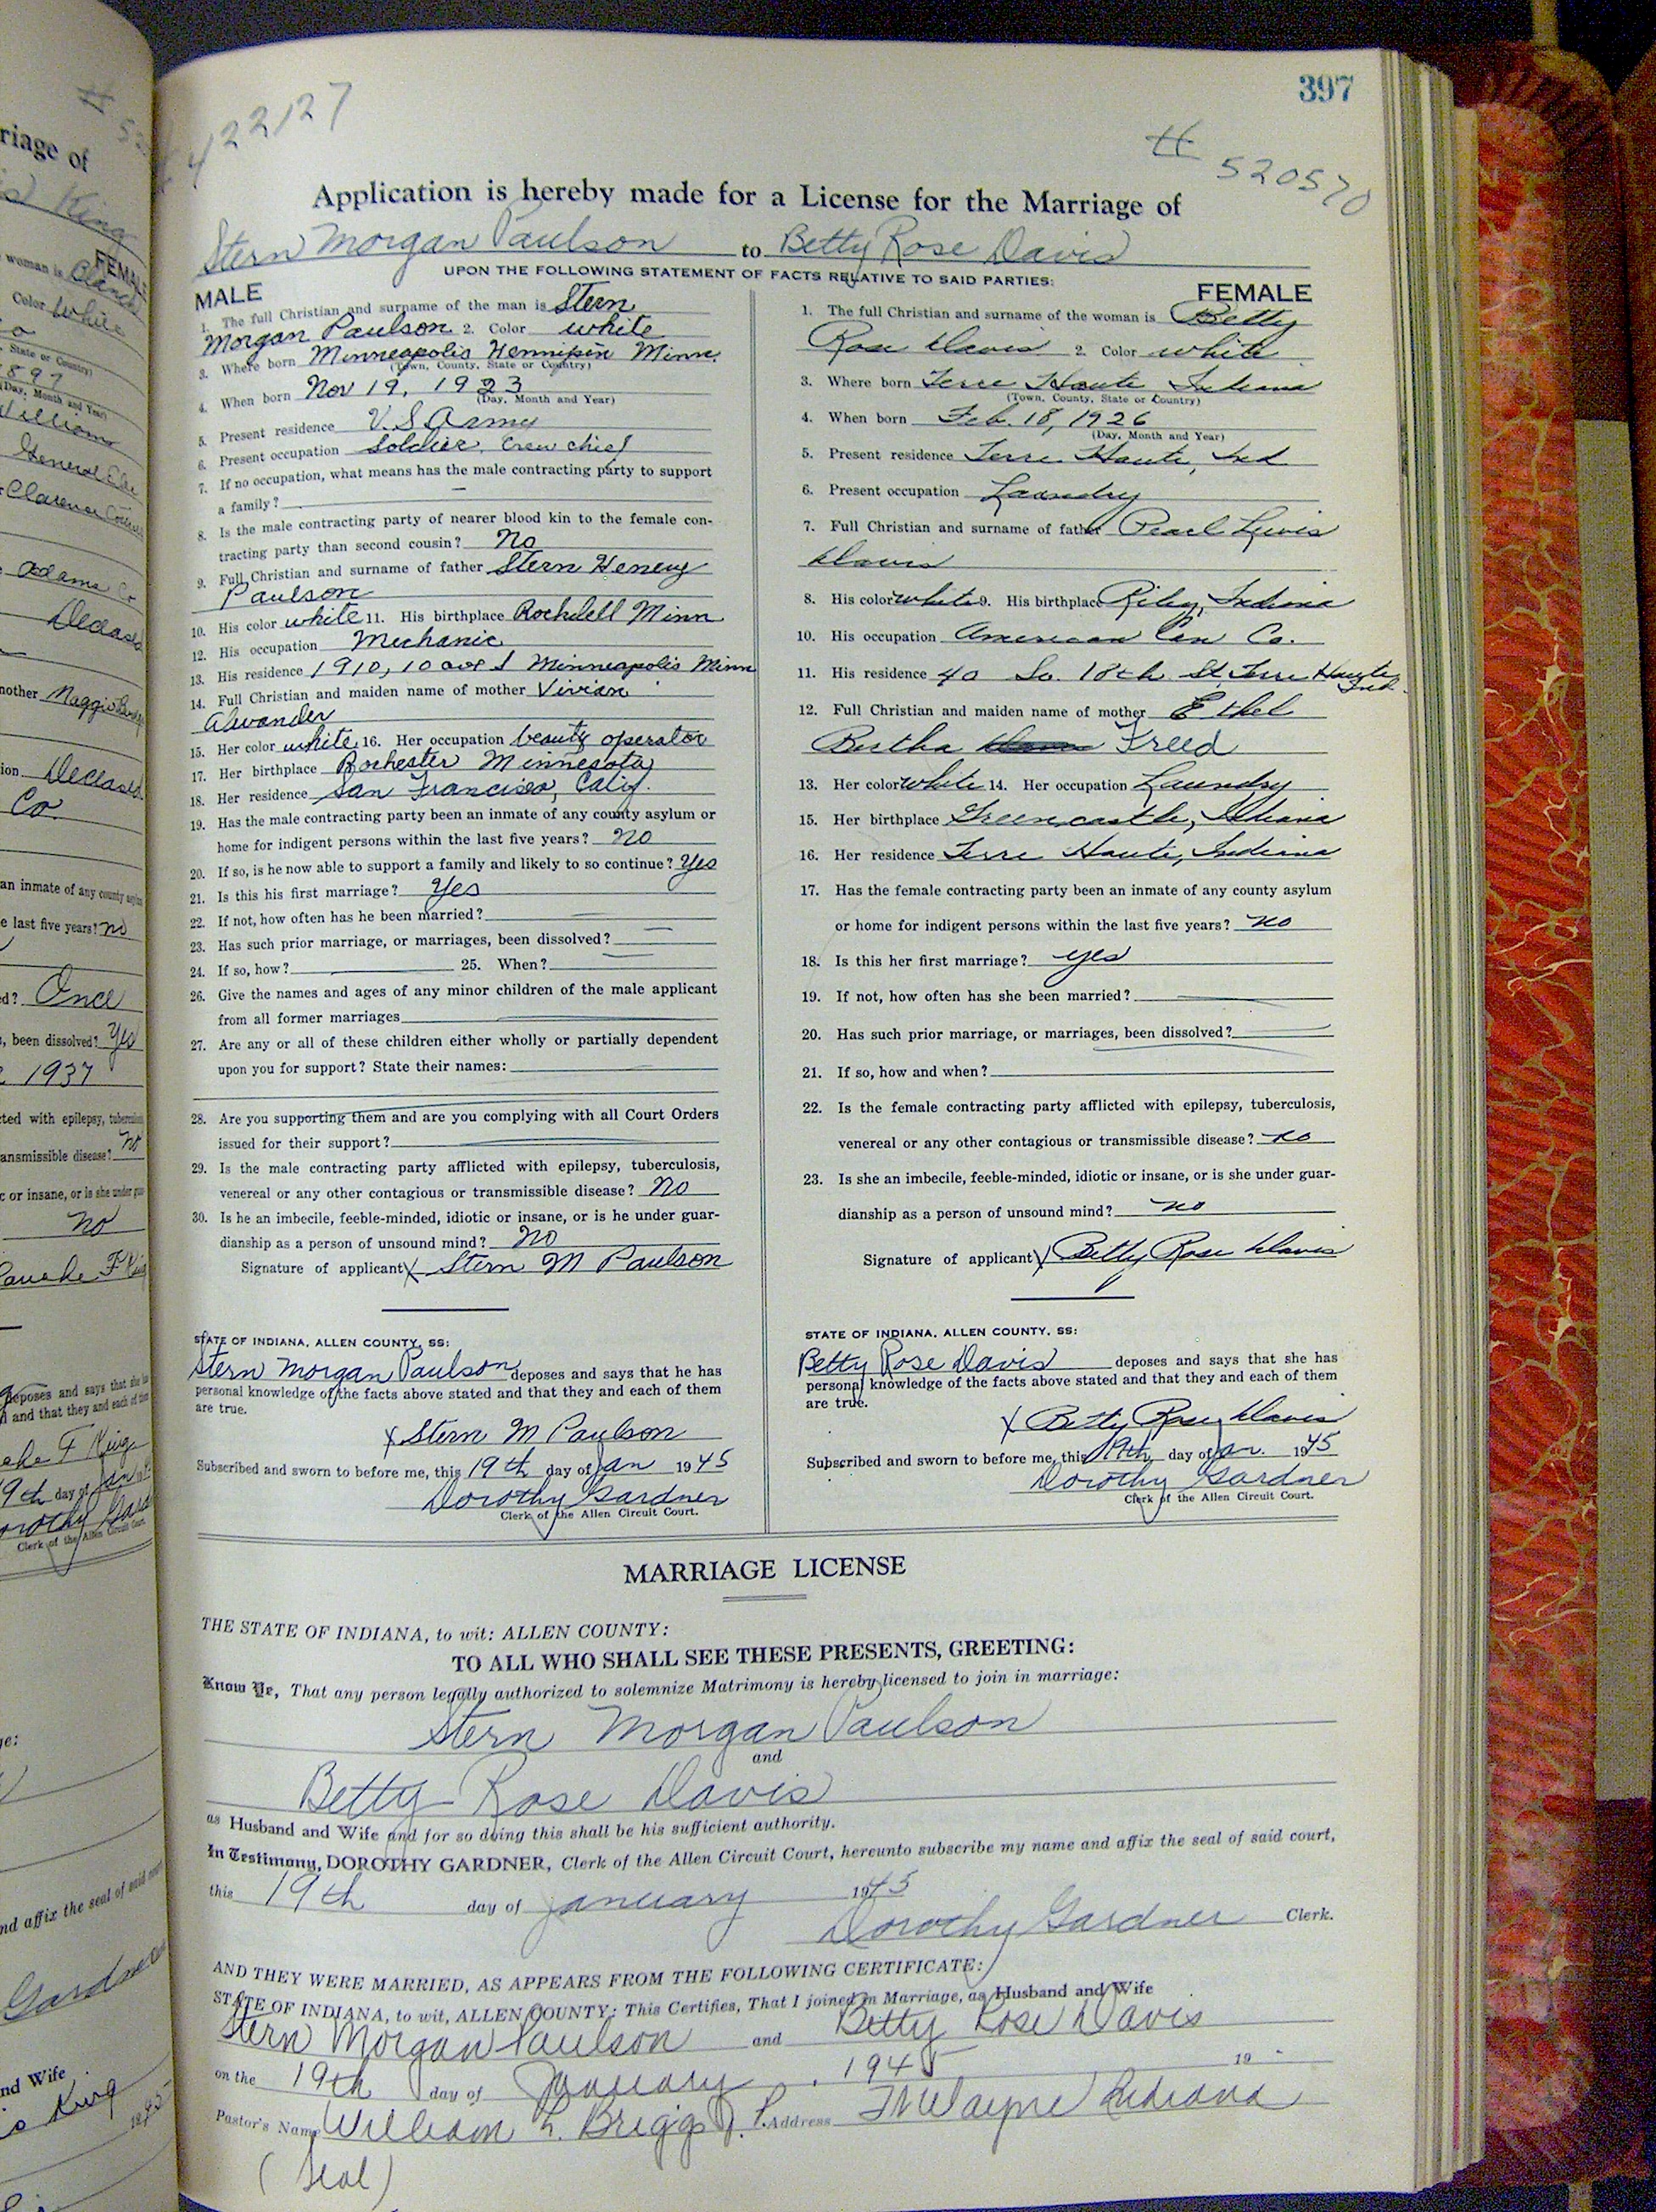 397
422127
# 520570
Application is hereby made for a License for the Marriage of
Stern Morgan Paulson to Betty Rose Davis
UPON THE FOLLOWING STATEMENT OF FACTS RELATIVE TO SAID PARTIES:
MALE
1. The full Christian and surname of the man is Stern
Morgan Paulson 2. Color white
3. Where born Minneapolis Hennipin Minn.
(Town, County, State or Country)
4. When born Nov 19, 1923
(Day, Month and Year)
5. Present residence U.S Army
6. Present occupation Soldier. Crew chief
7. If no occupation, what means has the male contracting party to support
a family? —
8. Is the male contracting party of nearer blood kin to the female con-
tracting party than second cousin? No
9. Full Christian and surname of father Stern Heneuy
Paulson
10. His color white 11. His birthplace Rochdell Minn
12. His occupation Mechanic
13. His residence 1910, 10 ave S Minneapolis Minn
14. Full Christian and maiden name of mother Vivian
Alwander
15. Her color white 16. Her occupation beauty operator
17. Her birthplace Rochester Minnesota
18. Her residence San Francisco, Calif.
19. Has the male contracting party been an inmate of any county asylum or
home for indigent persons within the last five years? No
20. If so, is he now able to support a family and likely to so continue? Yes
21. Is this his first marriage? Yes
22. If not, how often has he been married?
23. Has such prior marriage, or marriages, been dissolved?
24. If so, how? 25. When?
26. Give the names and ages of any minor children of the male applicant
from all former marriages
27. Are any or all of these children either wholly or partially dependent
upon you for support? State their names:
28. Are you supporting them and are you complying with all Court Orders
issued for their support?
29. Is the male contracting party afflicted with epilepsy, tuberculosis,
venereal or any other contagious or transmissible disease? No
30. Is he an imbecile, feeble-minded, idiotic or insane, or is he under guar-
dianship as a person of unsound mind? No
Signature of applicant X Stern M Paulson
STATE OF INDIANA, ALLEN COUNTY, SS:
Stern Morgan Paulson deposes and says that he has
personal knowledge of the facts above stated and that they and each of them
are true.
X Stern M Paulson
Subscribed and sworn to before me, this 19th day of Jan 1945
Dorothy Gardner
Clerk of the Allen Circuit Court.
FEMALE
1. The full Christian and surname of the woman is Betty
Rose Davis 2. Color white
3. Where born Terre Haute Indiana
(Town, County, State or Country)
4. When born Feb. 18, 1926
(Day, Month and Year)
5. Present residence Terre Haute, Ind
6. Present occupation Laundry
7. Full Christian and surname of father Pearl Lewis
Davis
8. His color white 9. His birthplace Riley, Indiana
10. His occupation American Can Co.
11. His residence 40 So. 18th St. Terre Haute
Ind.
12. Full Christian and maiden name of mother Ethel
Bertha Freed
13. Her color white 14. Her occupation Laundry
15. Her birthplace Greencastle, Indiana
16. Her residence Terre Haute, Indiana
17. Has the female contracting party been an inmate of any county asylum
or home for indigent persons within the last five years? no
18. Is this her first marriage? yes
19. If not, how often has she been married?
20. Has such prior marriage, or marriages, been dissolved?
21. If so, how and when?
22. Is the female contracting party afflicted with epilepsy, tuberculosis,
venereal or any other contagious or transmissible disease? no
23. Is she an imbecile, feeble-minded, idiotic or insane, or is she under guar-
dianship as a person of unsound mind? no
Signature of applicant X Betty Rose Davis
STATE OF INDIANA, ALLEN COUNTY, SS:
Betty Rose Davis deposes and says that she has
personal knowledge of the facts above stated and that they and each of them
are true.
X Betty Rose Davis
Subscribed and sworn to before me, this 19th day of Jan. 1945
Dorothy Gardner
Clerk of the Allen Circuit Court.
MARRIAGE LICENSE
THE STATE OF INDIANA, to wit: ALLEN COUNTY:
TO ALL WHO SHALL SEE THESE PRESENTS, GREETING:
Know Ye, That any person legally authorized to solemnize Matrimony is hereby licensed to join in marriage:
Stern Morgan Paulson
and
Betty Rose Davis
as Husband and Wife and for so doing this shall be his sufficient authority.
In Testimony, DOROTHY GARDNER, Clerk of the Allen Circuit Court, hereunto subscribe my name and affix the seal of said court,
this 19th day of January 1945
Dorothy Gardner Clerk.
AND THEY WERE MARRIED, AS APPEARS FROM THE FOLLOWING CERTIFICATE:
STATE OF INDIANA, to wit, ALLEN COUNTY: This Certifies, That I joined in Marriage, as Husband and Wife
Stern Morgan Paulson and Betty Rose Davis
on the 19th day of January, 1945 19
Pastor's Name William L. Briggs J. P. Address Ft Wayne Indiana
(Seal)